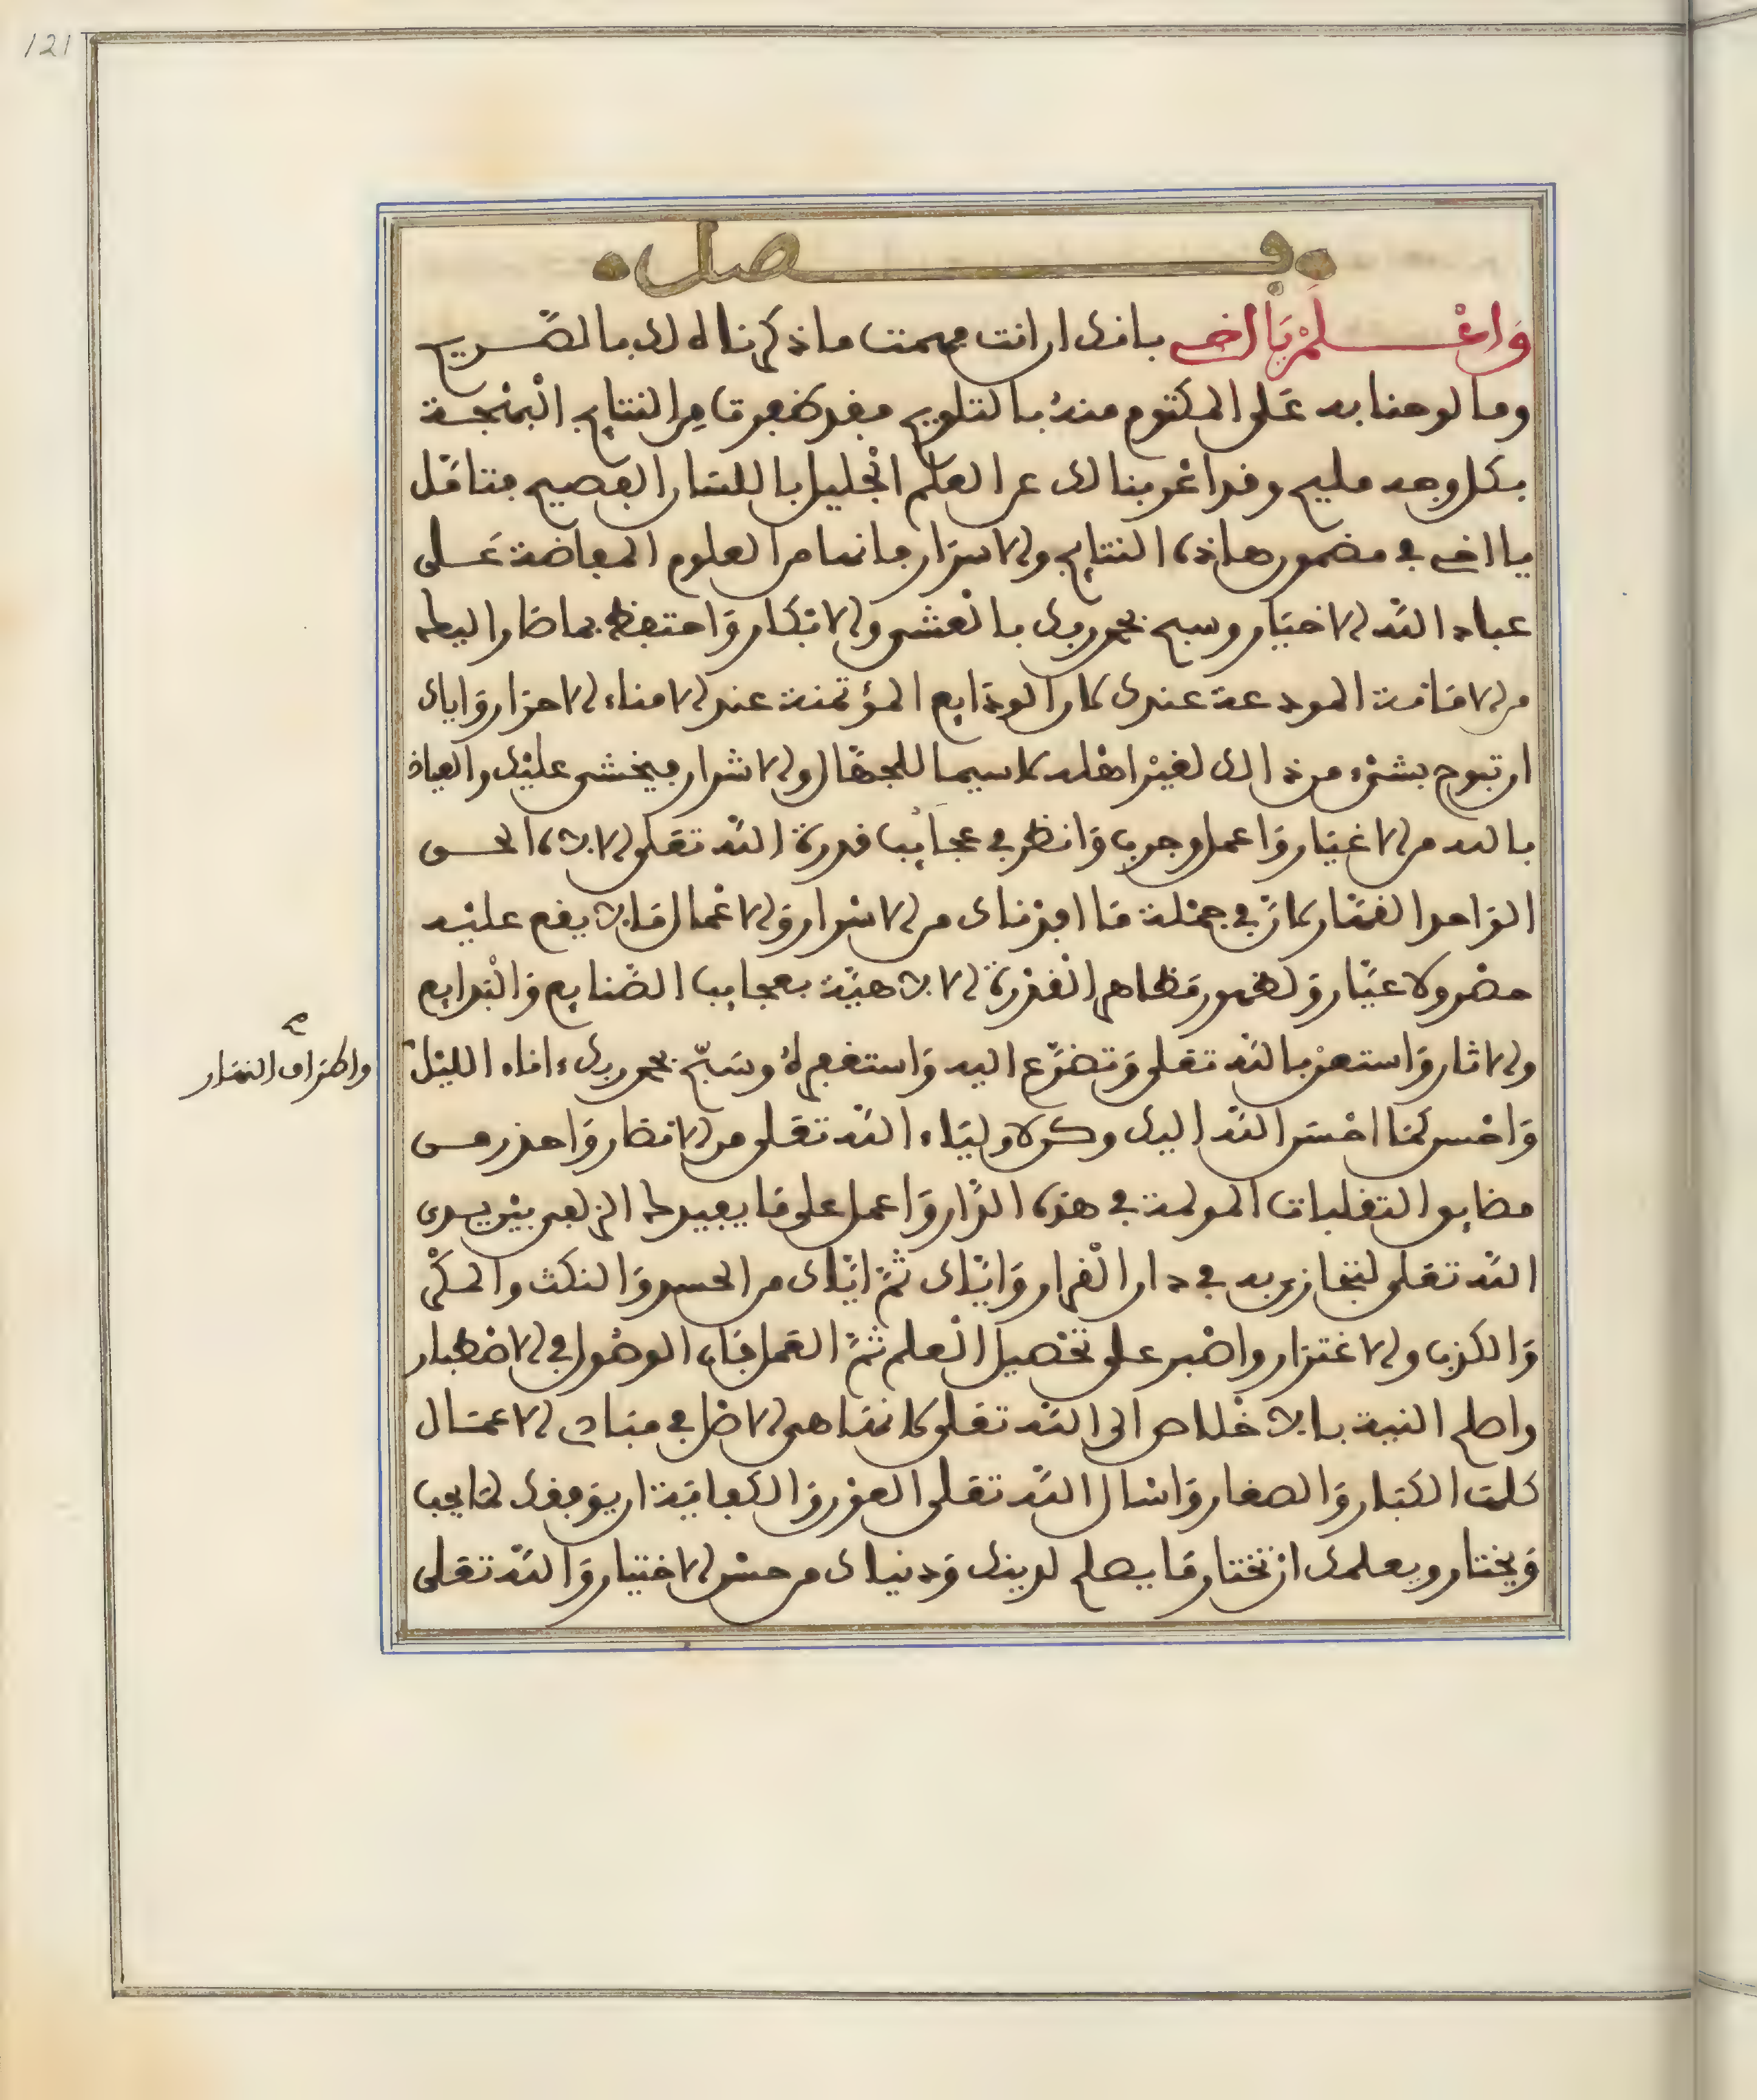 121
فصل
وَاعْلَمْ يَا اخي بانك ان انت فهمت ما ذكرناه لك بالصّريح
وما لوحنا به عَلى المكتوم منهُ بالتلويح فقد ظفرت مِن النتايج البهْجة
بكل وجه مليح وقد اعْربنا لك عن العلم الْجليل باللسَان الفصيح فتامّل
يا اخي في مضمون هاذه النتايج والاسرَار فانها من العلوم المفاضة عَلى
عباد اللّه الاخيَار وسبح بحمد ربك بالْعشي والابكار وَاحتفظ بما صَار اليك
من الامَانَة المودعة عندك كما ان الودَايع المؤتمنة عند الامناء الاحرَار وَاياك
ان تبوح بشيْء من ذالك لغيْر اهْله لاسيما للجهّال والاشرار فيخشى عليْك والعياذ
بالله من الاغيَار وَاعمل وجرب وَانظر في عجائب قدرة اللّه تعَلى الالاه الحي
الوَاحد القهّار كمَا انّ في جمْلة مَا افدْناك من الاسْرار وَالاعْمال مَا لا يقع عليْه
حصْر ولا عيَّار وَلظهور مَظاهر الْقدْرة الالاهيّة بعجايب الصَّنايع وَالْبدايع
والاثار وَاستعنْ باللّه تعَلى وَتضرَّع اليه وَاستغفر لهُ وسَبّح بحمد ربك ءاناء الليْل
واطرَاف النهَار
صح
وَاحْسن كمَا احْسَن اللّه اليك وكن لاوليَاء اللّه تعَلى من الانصَار وَاحذر من
مصايب التقلبات المولمة في هذه الدّار وَاعمل على مَا يفيدك الزلفى بيْن يدي
اللّه تعَلى لتجَازى به في دار الْقرار وَايَّاك ثمّ ايّاك من الحسد وَالنكث والمكْر
وَالكذب والاغترَار واصْبر على تحْصيل الْعلم ثمّ العَمل فان الوصُول في الاصْطبار
واصلح النية بالاخْلاص الى اللّه تعَلى لانهَا هي الاصْل في مبَادي الاعمَال
كلهَا الكبَار وَالصغَار وَاسْال اللّه تعَلى العوْن وَالكفايَة ان يوفقك لمَا يحب
وَيختار ويعلمك ان تختار مَا يصلح لدينك وَدنياك من حسْن الاختيار وَاللّه تعَلى